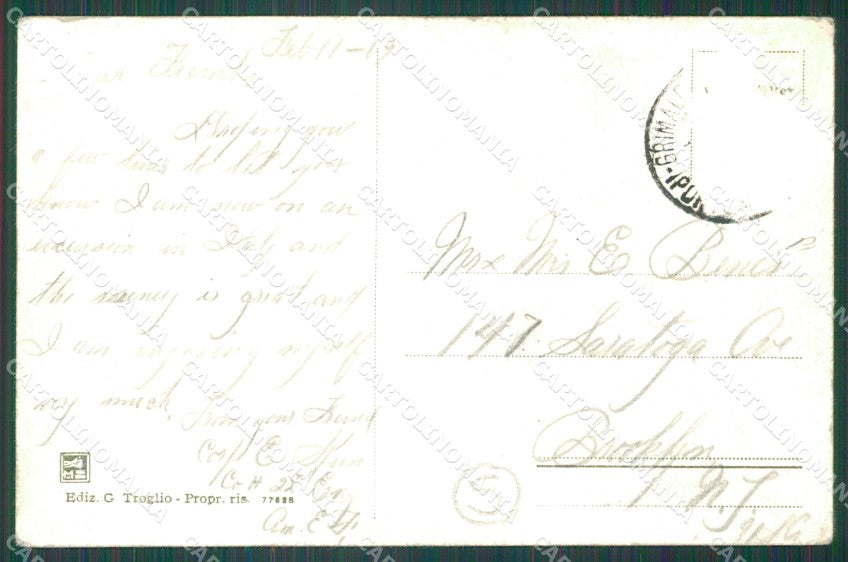 Feb 11-19
Dear Friend
Droping you
a few lines to let you
know I am now on an
excursion in Italy and
the scenery is great and
I am enjoying myself
very much.
From your Friend
Corp E.
Co H 25 Eng
Am. E. F.
Ediz. G Troglio - Propr. ris. 77628
GRIMAL
Mr & Mrs E
147 Saratoga Ave
Brooklyn
N.Y.
CARTOLINOMANIA